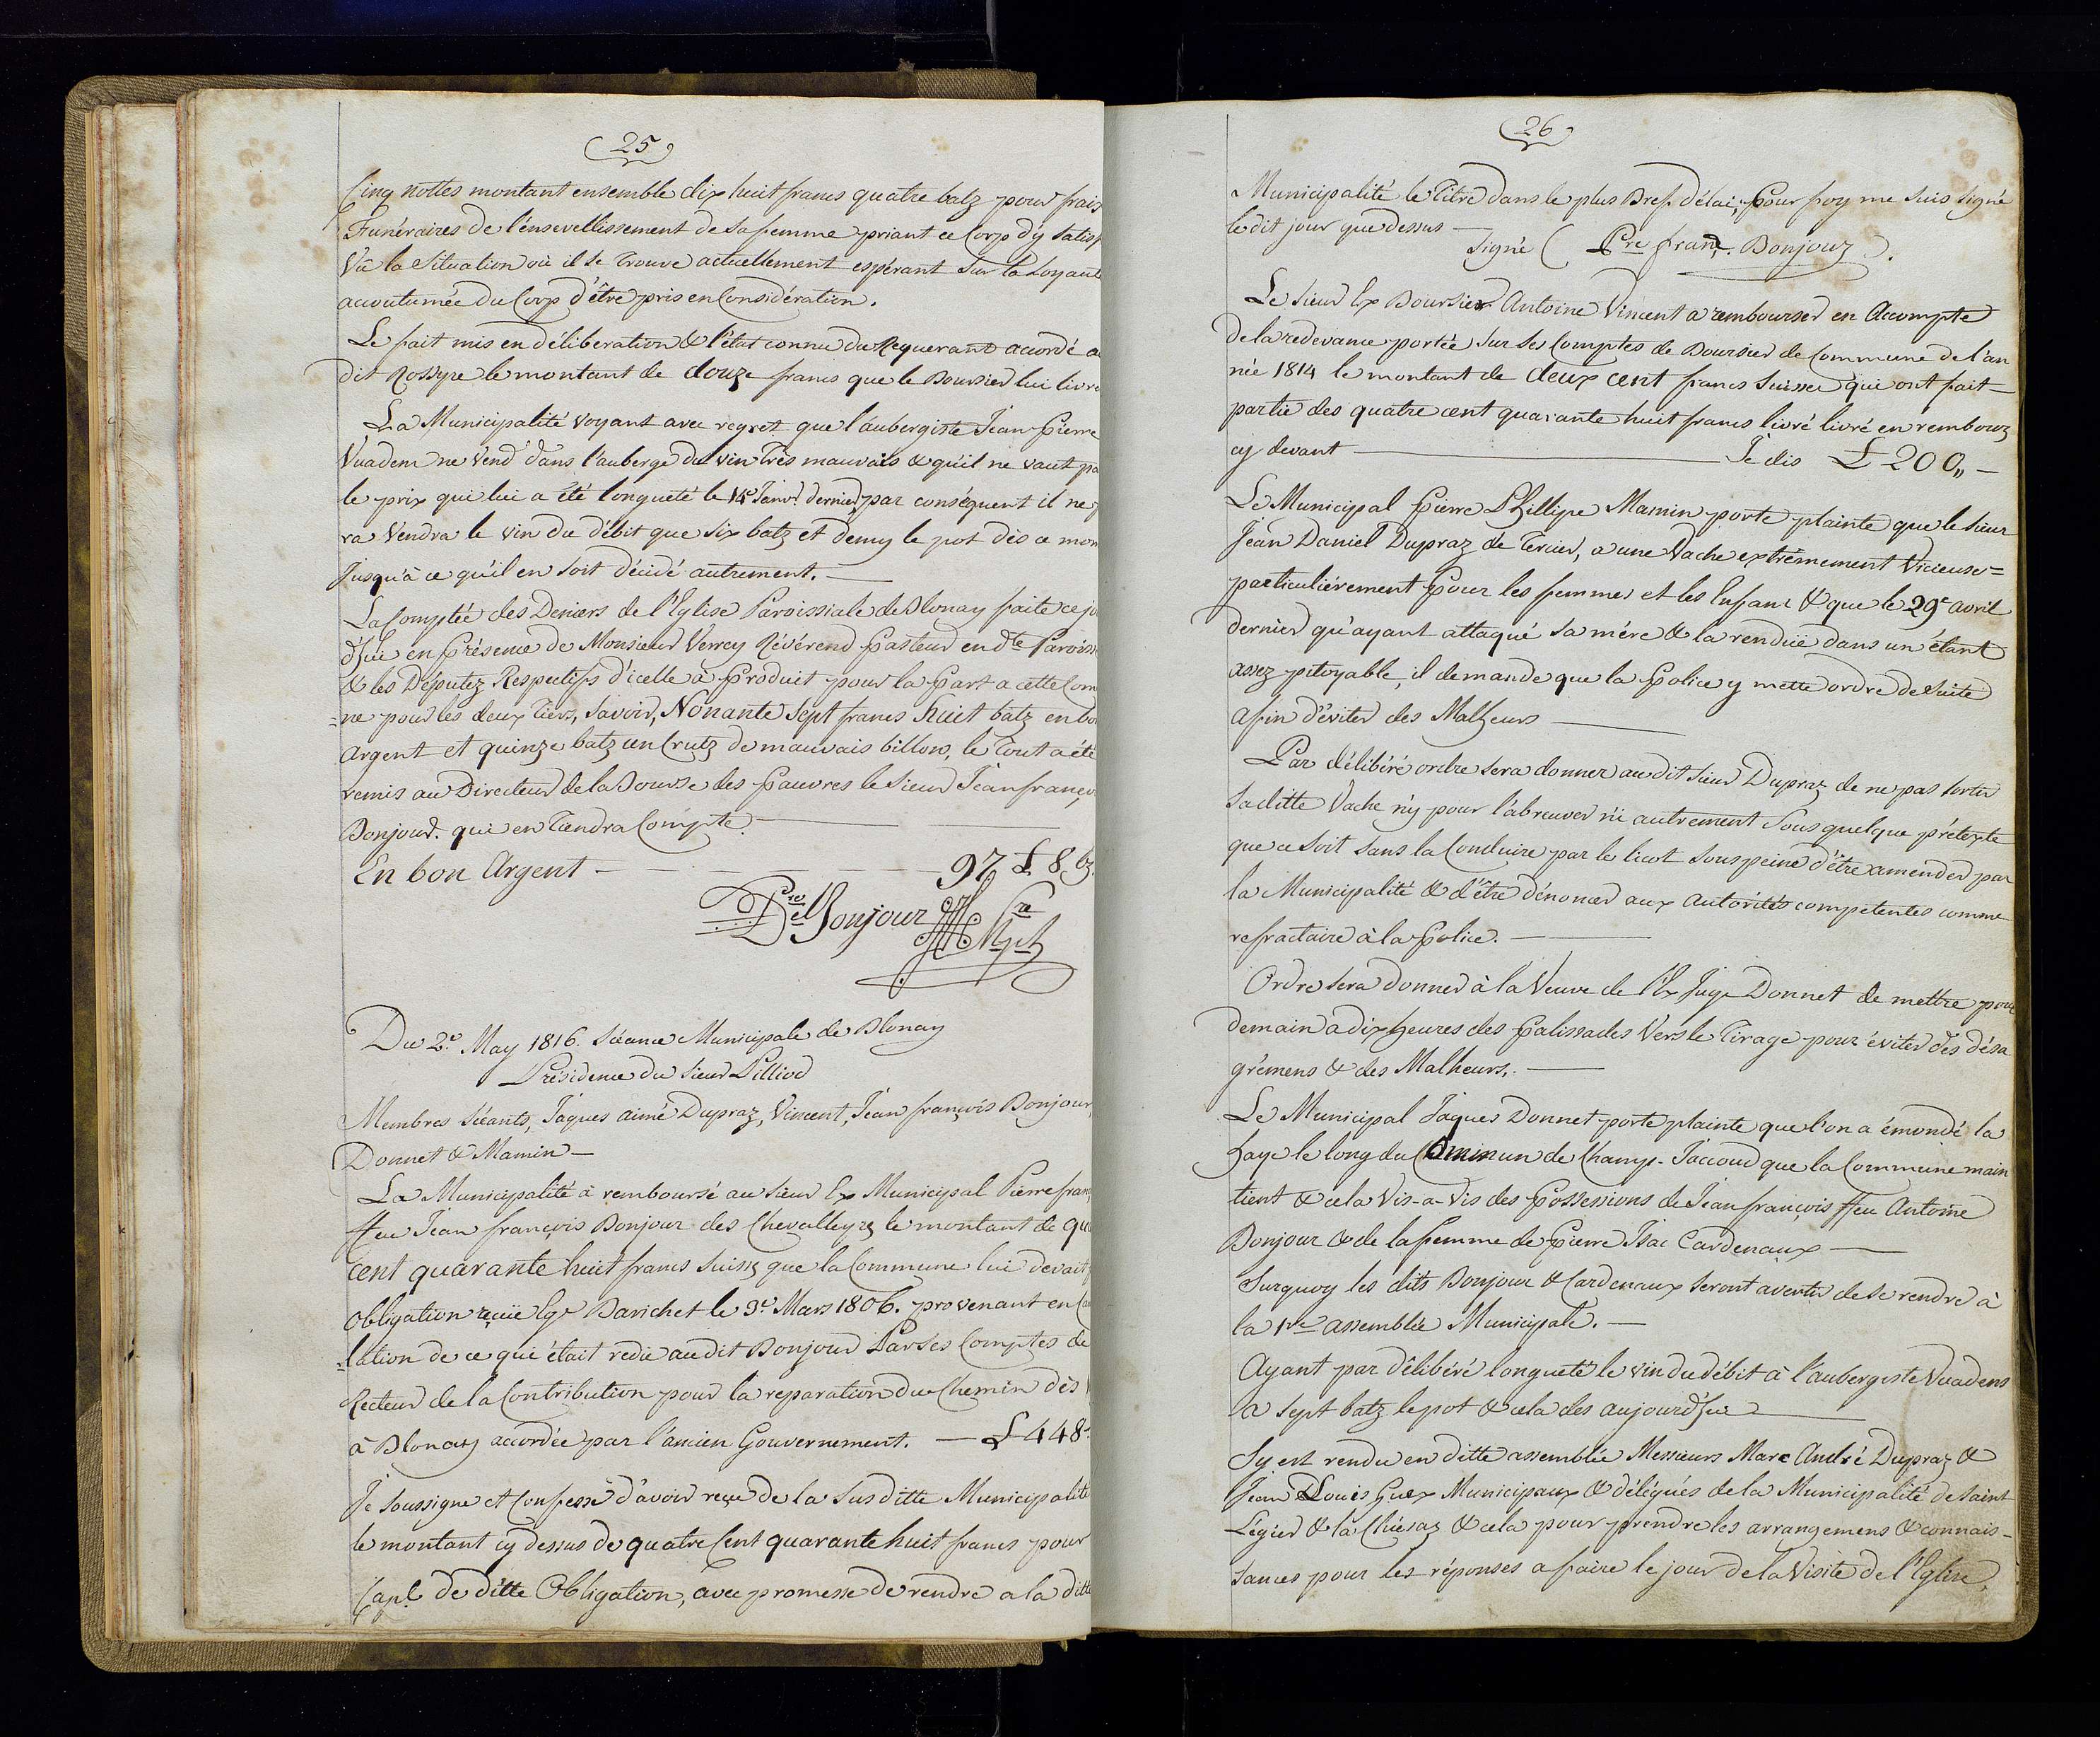 25
Cinq nottes montant ensemble dix huit francs quatre batz pour frais
Funéraires de l'ensevellissement de sa femme priant ce Corp d'y satisf
Vû la Situation où il se trouve actuellement espérant sur la Loyauté
accoutumée du Corp d'être pris en Considération.
Le fait mis en déliberation & l'état connu du Requerant acordé a
dit Rossyre le montant de douze francs que le Boursier lui livre
La Municipalité voyant avec regret que l'aubergiste Jean Pierre
Vuadem ne Vend dans l'auberge du vin Très mauvais & qu'il ne vaut pa
le prix qui lui a été longueté le 14e Janvr dernier par conséquent il ne
ra Vendra le vin du débit que six batz et demy le pot dès ce mom
Jusqu'à ce qu'il en soit décidé autrement. —
La Comptée des Deniers de l'Eglise Paroissiale de Blonay faite ce jo
d'hui en Présence de Monsieur Verrey Révérend Pasteur en dte Paroiss
& les Députez Respectifs d'icelle à Produit pour la Part a cette Com
=ne pour les deux tiers, savoir, Nonante sept francs huit batz en bo
Argent et quinze batz un Crutz de mauvais billon, le Tout a été
remis au Directeur de la Bourse des Pauvres le Sieur Jean françoi
Bonjour. qui en Tiendra Compte. —
En bon Argent — 97 £ 8 bz.
Del Bonjour
Du 2e May 1816. Séance Municipale de Blonay
Présidence du Sieur Pilliod
Membres Séants, Jaques aimé Dupraz, Vincent, Jean françois Bonjour,
Donnet & Mamin —
La Municipalité à remboursé au Sieur Ex Municipal Pierre fran
ffeu Jean françois Bonjour des Chevalleyrs le montant de qua
cent quarante huit francs suiss que la Commune lui devait
Obligation reçüe Egr Darichet le 3e Mars 1806. provenant en Ca
=lation de ce qui était redû au dit Bonjour Par ses Comptes de
Recteur de la Contribution pour la reparation du Chemin dès
à Blonay accordée par l'ancien Gouvernement. — £ 448
Je soussigne et Confesse d'avoir reçu de la Sus ditte Municipalité
le montant cy dessus de quatre Cent quarante huit francs pour
Capl de ditte Obligation, avec promesse de rendre a la ditte
26
Municipalité le Titre dans le plus Bref délai, Pour foy me suis signé
le dit jour que dessus —
Signé ( Pre franç. Bonjour ).
Le Sieur Ex Boursier Antoine Vincent a rembourser en Accompte
de la redevance portée sur ses Comptes de Boursier de Commune de l'an
née 1814 le montant de deux cent francs Suisse qui ont fait —
partie des quatre cent quarante huit francs livré livré en rembours
cy devant — Je dis £ 200,, —
Le Municipal Pierre Phillipe Mamin porte plainte que le Sieur
Jean Daniel Dupraz de Tercier, a une Vache extrêmement Vicieuse =
particuliérement Pour les femmes et les Enfans & que le 29e avril
dernier qu'ayant attaqué sa mére & la renduë dans un étant
assez pitoyable, il demande que la Police y mette ordre de suite
afin d'éviter des Malheurs —
Par délibéré ordre sera donner au dit Sieur Dupraz de ne pas sortir
sa ditte Vache n'y pour l'abreuver n'i autrement Sous quelque prétexte
que ce soit sans la Conduire par le licot sous peine d'être amender par
la Municipalité & d'être dénoncer aux Autorités competentes comme
refractaire à la Police. —
Ordre sera donner à la Veuve de l'Ex Juge Donnet de mettre pour
demain a dix heures des Palissades Vers le Tirage pour éviter des désa
grémens & des Malheurs. —
Le Municipal Jaques Donnet porte plainte que l'on a émondé la
haye le long du Commun de Champ-Jaccoud que la Commune main
tient & cela Vis-a-Vis des Possessions de Jean françois ffeu Antoine
Bonjour & de la femme de Pierre Isac Cardenaux —
Surquoy les dits Bonjour & Cardenaux seront avertis de se rendre à
la 1re assemblée Municipale. —
Ayant par délibéré longueté le vin du débit à l'aubergiste Vuadens
a sept batz le pot & cela des aujourd'hui —
S'y est rendu en ditte assemblée Messieurs Marc André Dupraz &
Jean Louis Guex Municipaux & délégués de la Municipalité de Saint
Légier & la Chiésaz & cela pour prendre les arrangemens & connais-
sances pour les réponses a faire le jour de la Visite de l'Eglise,